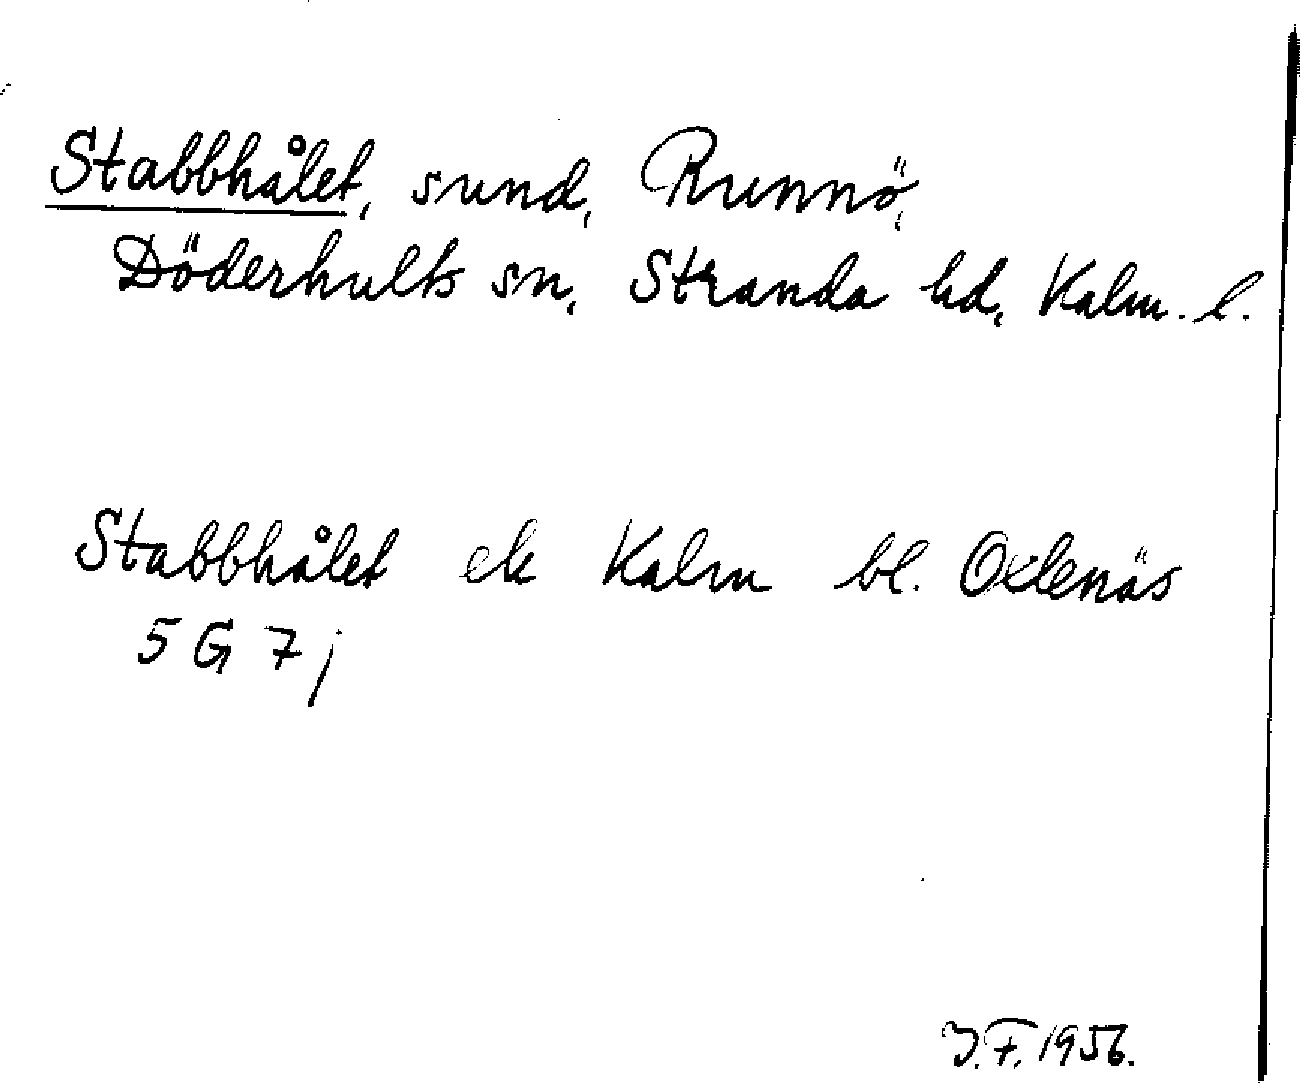 Stabbhålet, sund, Runnö,
Döderhults sn, Stranda hd, Kalm. l.
Stabbhålet ek Kalm bl. Oxlenäs
5 G 7 j
J.F. 1956.